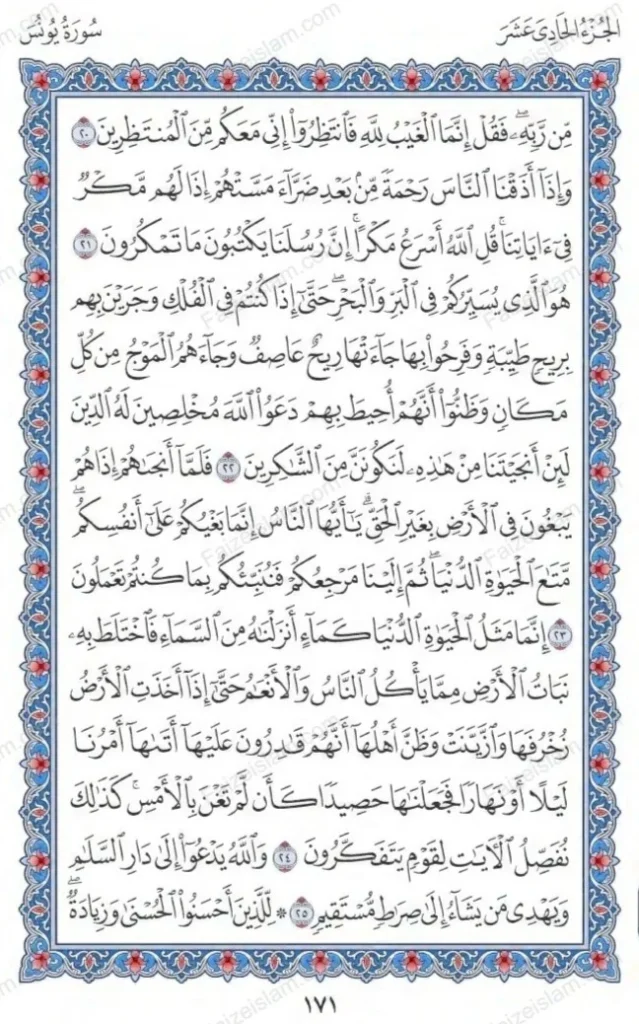 الجُزْءُ الحَادِى عَشَرَ
سُورَةُ يُونُسَ
مِّن رَّبِّهِۦۖ فَقُلْ إِنَّمَا ٱلْغَيْبُ لِلَّهِ فَٱنتَظِرُوٓا۟ إِنِّى مَعَكُم مِّنَ ٱلْمُنتَظِرِينَ ٢٠
وَإِذَآ أَذَقْنَا ٱلنَّاسَ رَحْمَةً مِّنۢ بَعْدِ ضَرَّآءَ مَسَّتْهُمْ إِذَا لَهُم مَّكْرٌ
فِىٓ ءَايَاتِنَاۚ قُلِ ٱللَّهُ أَسْرَعُ مَكْرًاۚ إِنَّ رُسُلَنَا يَكْتُبُونَ مَا تَمْكُرُونَ ٢١
هُوَ ٱلَّذِى يُسَيِّرُكُمْ فِى ٱلْبَرِّ وَٱلْبَحْرِۖ حَتَّىٰٓ إِذَا كُنتُمْ فِى ٱلْفُلْكِ وَجَرَيْنَ بِهِم
بِرِيحٍ طَيِّبَةٍ وَفَرِحُوا۟ بِهَا جَآءَتْهَا رِيحٌ عَاصِفٌ وَجَآءَهُمُ ٱلْمَوْجُ مِن كُلِّ
مَكَانٍ وَظَنُّوٓا۟ أَنَّهُمْ أُحِيطَ بِهِمْ دَعَوُا۟ ٱللَّهَ مُخْلِصِينَ لَهُ ٱلدِّينَ
لَئِنْ أَنجَيْتَنَا مِنْ هَٰذِهِۦ لَنَكُونَنَّ مِنَ ٱلشَّٰكِرِينَ ٢٢ فَلَمَّآ أَنجَىٰهُمْ إِذَا هُمْ
يَبْغُونَ فِى ٱلْأَرْضِ بِغَيْرِ ٱلْحَقِّۗ يَٰٓأَيُّهَا ٱلنَّاسُ إِنَّمَا بَغْيُكُمْ عَلَىٰٓ أَنفُسِكُمۖ
مَّتَٰعَ ٱلْحَيَوٰةِ ٱلدُّنْيَاۖ ثُمَّ إِلَيْنَا مَرْجِعُكُمْ فَنُنَبِّئُكُم بِمَا كُنتُمْ تَعْمَلُونَ
٢٣ إِنَّمَا مَثَلُ ٱلْحَيَوٰةِ ٱلدُّنْيَا كَمَآءٍ أَنزَلْنَٰهُ مِنَ ٱلسَّمَآءِ فَٱخْتَلَطَ بِهِۦ
نَبَاتُ ٱلْأَرْضِ مِمَّا يَأْكُلُ ٱلنَّاسُ وَٱلْأَنْعَٰمُ حَتَّىٰٓ إِذَآ أَخَذَتِ ٱلْأَرْضُ
زُخْرُفَهَا وَٱزَّيَّنَتْ وَظَنَّ أَهْلُهَآ أَنَّهُمْ قَٰدِرُونَ عَلَيْهَآ أَتَىٰهَآ أَمْرُنَا
لَيْلًا أَوْ نَهَارًا فَجَعَلْنَٰهَا حَصِيدًا كَأَن لَّمْ تَغْنَ بِٱلْأَمْسِۚ كَذَٰلِكَ
نُفَصِّلُ ٱلْآيَٰتِ لِقَوْمٍ يَتَفَكَّرُونَ ٢٤ وَٱللَّهُ يَدْعُوٓا۟ إِلَىٰ دَارِ ٱلسَّلَٰمِ
وَيَهْدِى مَن يَشَآءُ إِلَىٰ صِرَٰطٍ مُّسْتَقِيمٍ ٢٥ ۞ لِّلَّذِينَ أَحْسَنُوا۟ ٱلْحُسْنَىٰ وَزِيَادَةٌۖ
١٧١
Faizeislam.com